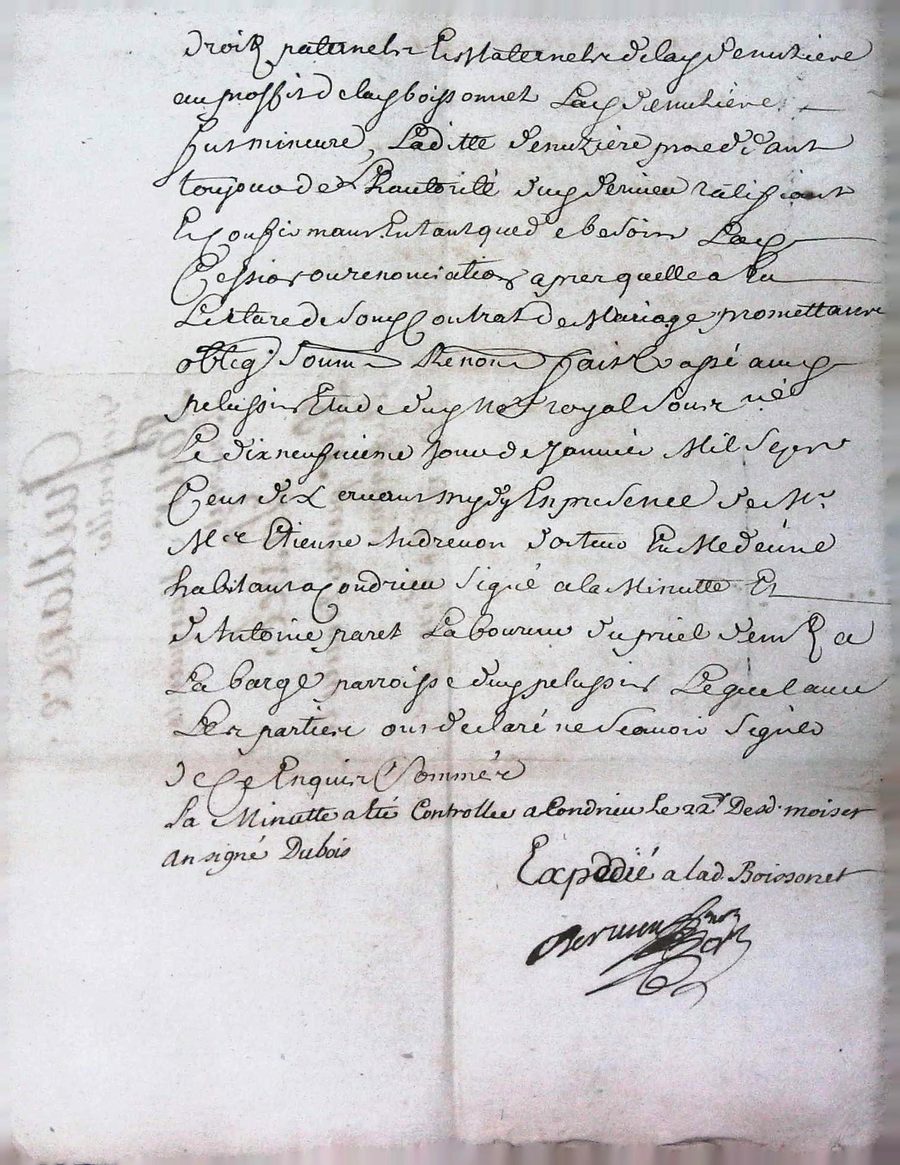 droitz paternelz et Maternelz de lad denuziere
au proffit de lad boissonnet Lad denuziere
fut mineure, Laditte denuziere procedant
toujours de L'hautorité dud dervieu ratiffiant
Et Confirmant Entant que de besoins Lad
Cession ou renonciation apres quelle a Eu
Lecture de Sond Contrat de Mariage promettant
oblig Soum Renon fait & passé aud
pelussins Etude dud No.re royal Soub né
Le dix neufvieme Jour de Janvier Mil Sept
Cent dix avant mydy En presence de Mr
M.re Etienne Andrevon docteur En Medecine
habitant a Condrieu Signé a la Minutte Et
d'Antoine paret Laboureur du
La barge parroisse dud pelussins Lequel avec
Les parties ont declaré ne Scavoir Signer
de Ce Enquis & Sommés
La Minutte a été Controllee a Condrieu Le 22.e Desd. mois et
an signé Dubois
Expedié a lad Boissonet
Dervieu